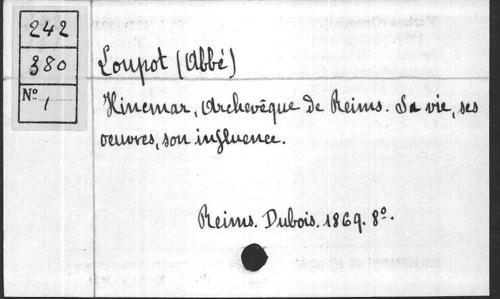 242
380
Nº 1
Loupot (Abbé)
Hincmar, Archevêque de Reims. Sa vie, ses
oeuvres, son influence.
Reims. Dubois. 1869. 8º.